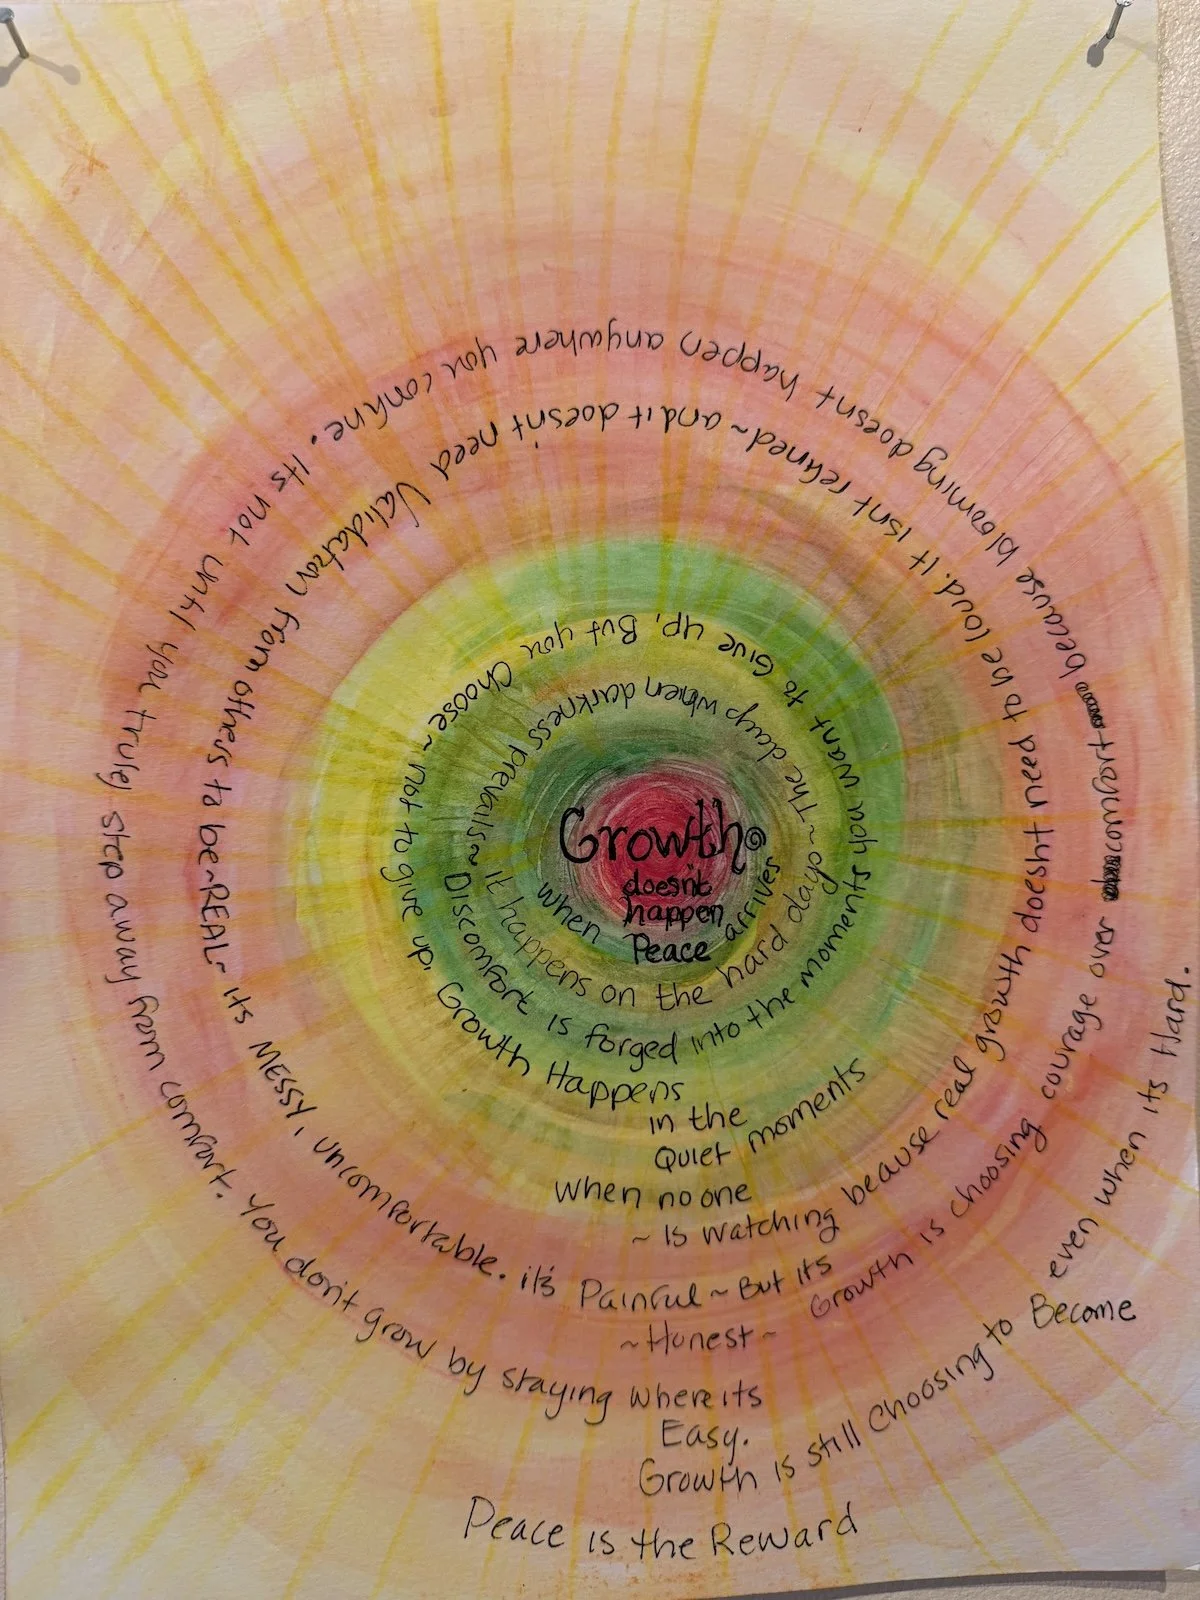 Growth
doesn't
happen
when Peace arrives
it happens on the hard days ~ The days when darkness prevails ~
Discomfort is forged into the moments you want to Give up, But you Choose ~ not to give up. Growth Happens
in the
Quiet moments
when no one
~ Is watching because real growth doesn't need to be loud. It isnt refined ~ and it doesn't need Validation from others to be ~ REAL ~ its MESSY, uncomfortable. it's Painful ~ But its
~ Honest ~
Growth is choosing courage over comfort because blooming doesnt happen anywhere you confine. Its not until you truly step away from comfort. You don't grow by staying where its
Easy.
Growth is still Choosing to Become
even when its Hard.
Peace is the Reward